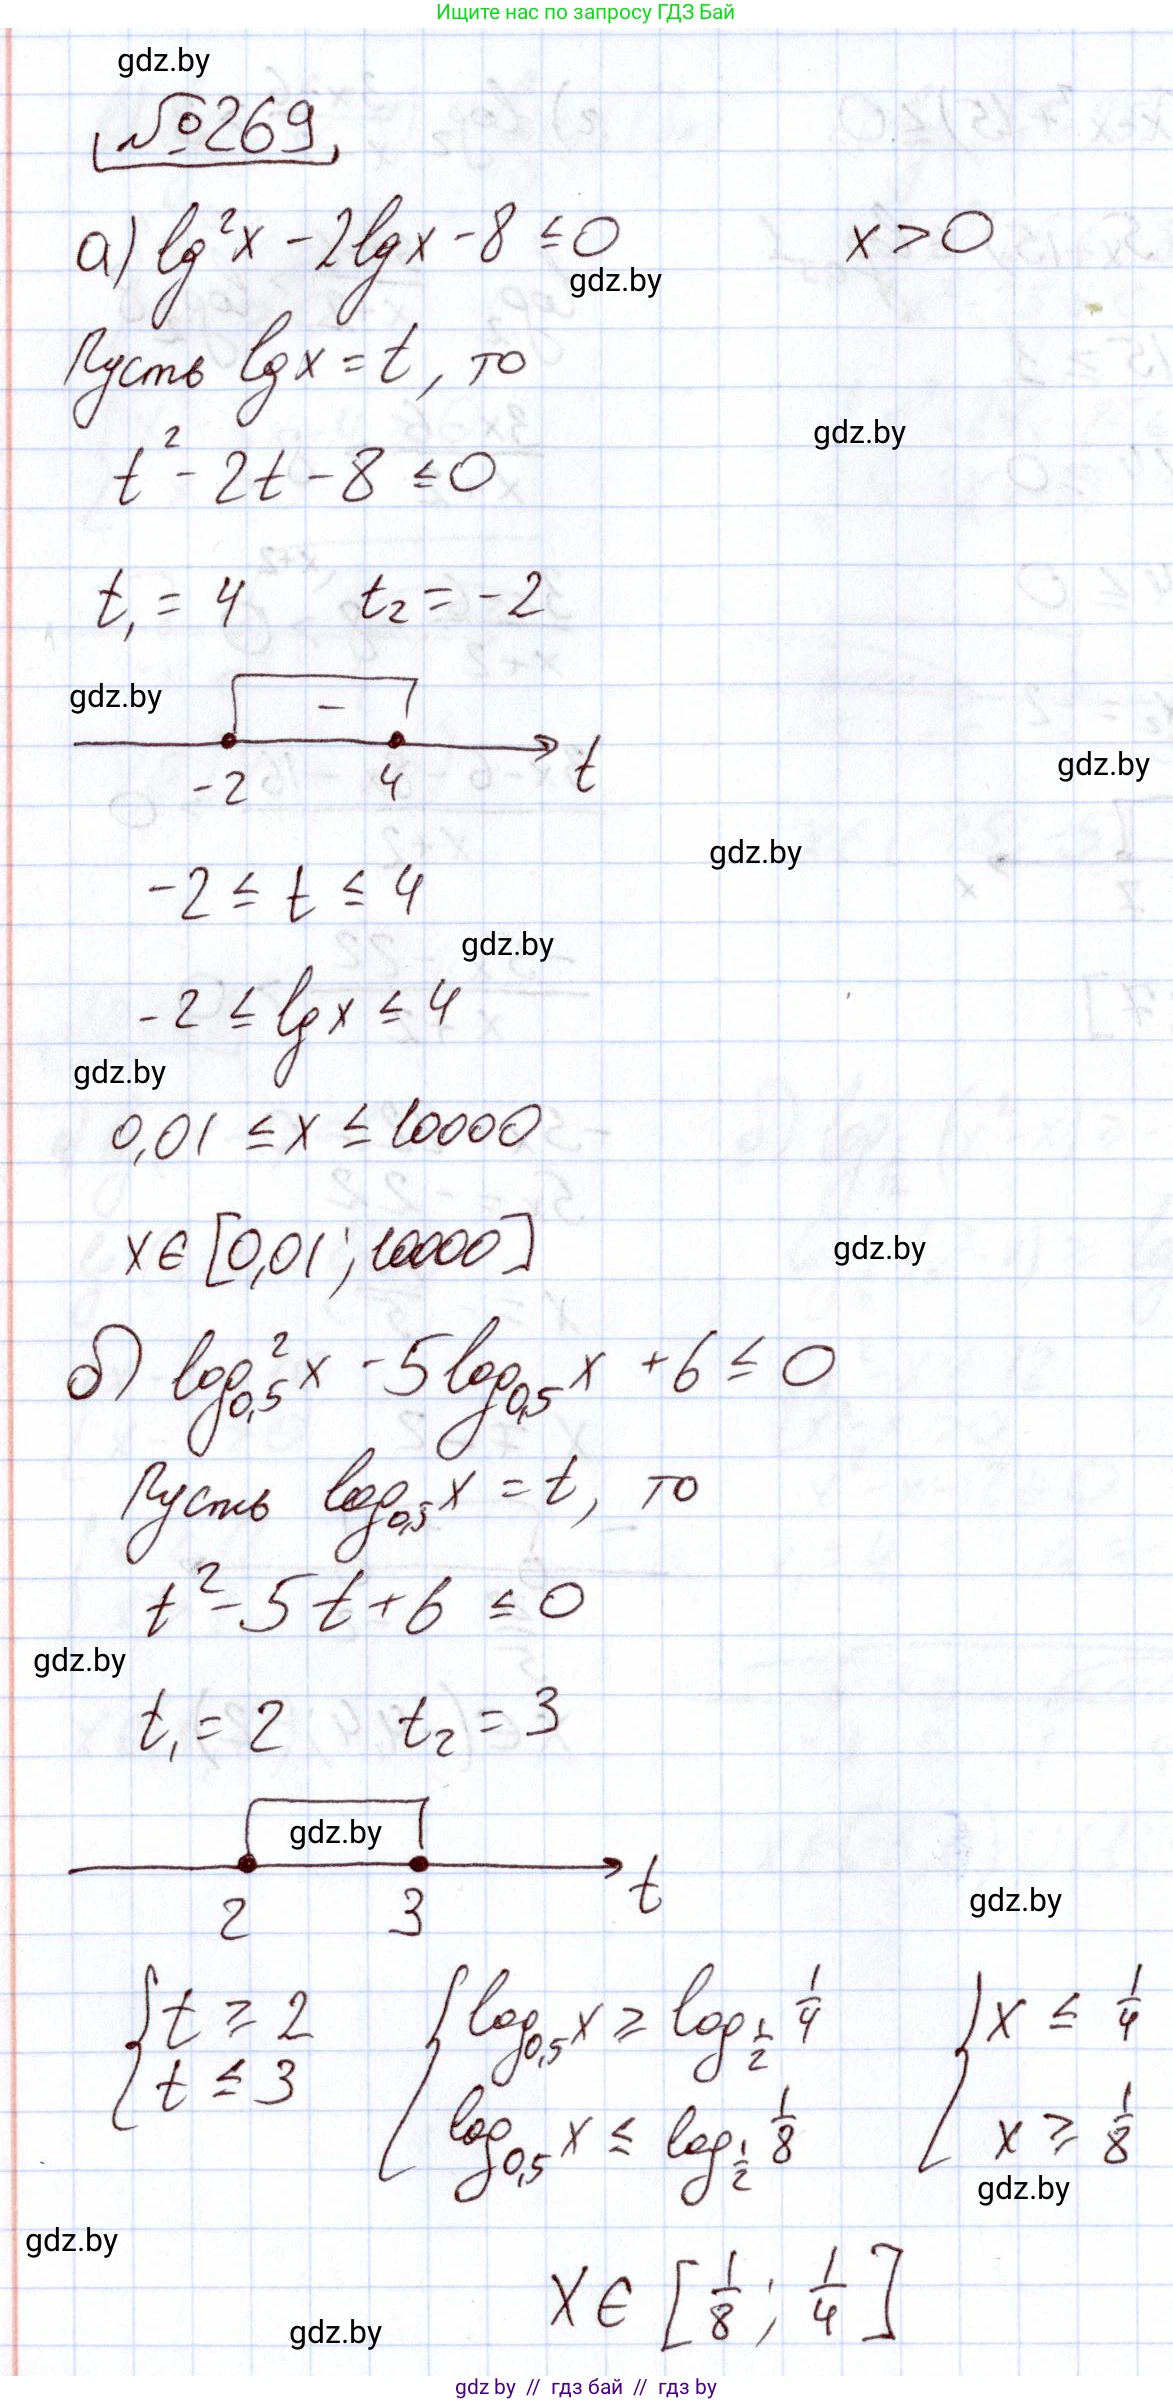 Ищите нас по запросу ГДЗ Бай
gdz.by
№269
а) lg²x - 2lgx - 8 ≤ 0 x > 0
gdz.by
Пусть lgx = t, то
gdz.by
t² - 2t - 8 ≤ 0
t₁ = 4 t₂ = -2
gdz.by
-
-2 4 t
gdz.by
gdz.by
-2 ≤ t ≤ 4
gdz.by
-2 ≤ lgx ≤ 4
gdz.by
0,01 ≤ x ≤ 10000
x ∈ [0,01; 10000]
gdz.by
б) log²₀,₅x - 5log₀,₅x + 6 ≤ 0
Пусть log₀,₅x = t, то
t² - 5t + 6 ≤ 0
gdz.by
t₁ = 2 t₂ = 3
gdz.by
2 3 t
gdz.by
{ t ≥ 2 { log₀,₅x ≥ log_{1/2} 1/4 { x ≤ 1/4
t ≤ 3 log₀,₅x ≤ log_{1/2} 1/8 x ≥ 1/8
gdz.by
gdz.by
x ∈ [1/8; 1/4]
gdz.by
gdz by // гдз бай // гдз by